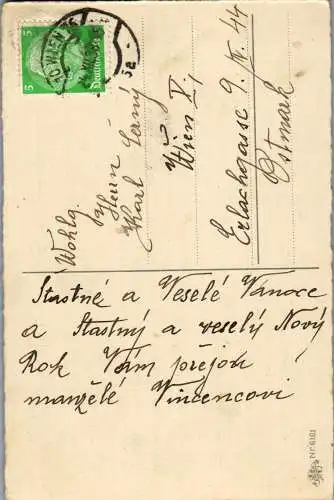 5
5
WIEN
Wohlg.
Herrn
Karl Černý
Wien X,
Erlachgasse 9. IV. 44
Ostmark
Stastné a Veselé Vánoce
a Stastný a veselý Nový
Rok Vám přejou
manželé Vincencovi
Nr. 6161